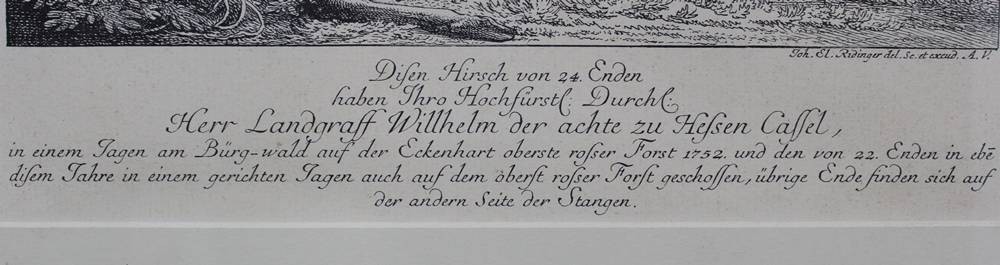 Joh. El. Ridinger del. Sc. et excud. A.V.
Disen Hirsch von 24. Enden
haben Ihro Hochfürstl: Durchl:
Herr Landgraff Willhelm der achte zu Heßen Cassel,
in einem Jagen am Bürg-wald auf der Eckenhart oberste roßer Forst 1752. und den von 22. Enden in ebē
disem Jahre in einem gerichten Jagen auch auf dem öberst roßer Forst geschossen, übrige Ende finden sich auf
der andern Seite der Stangen.